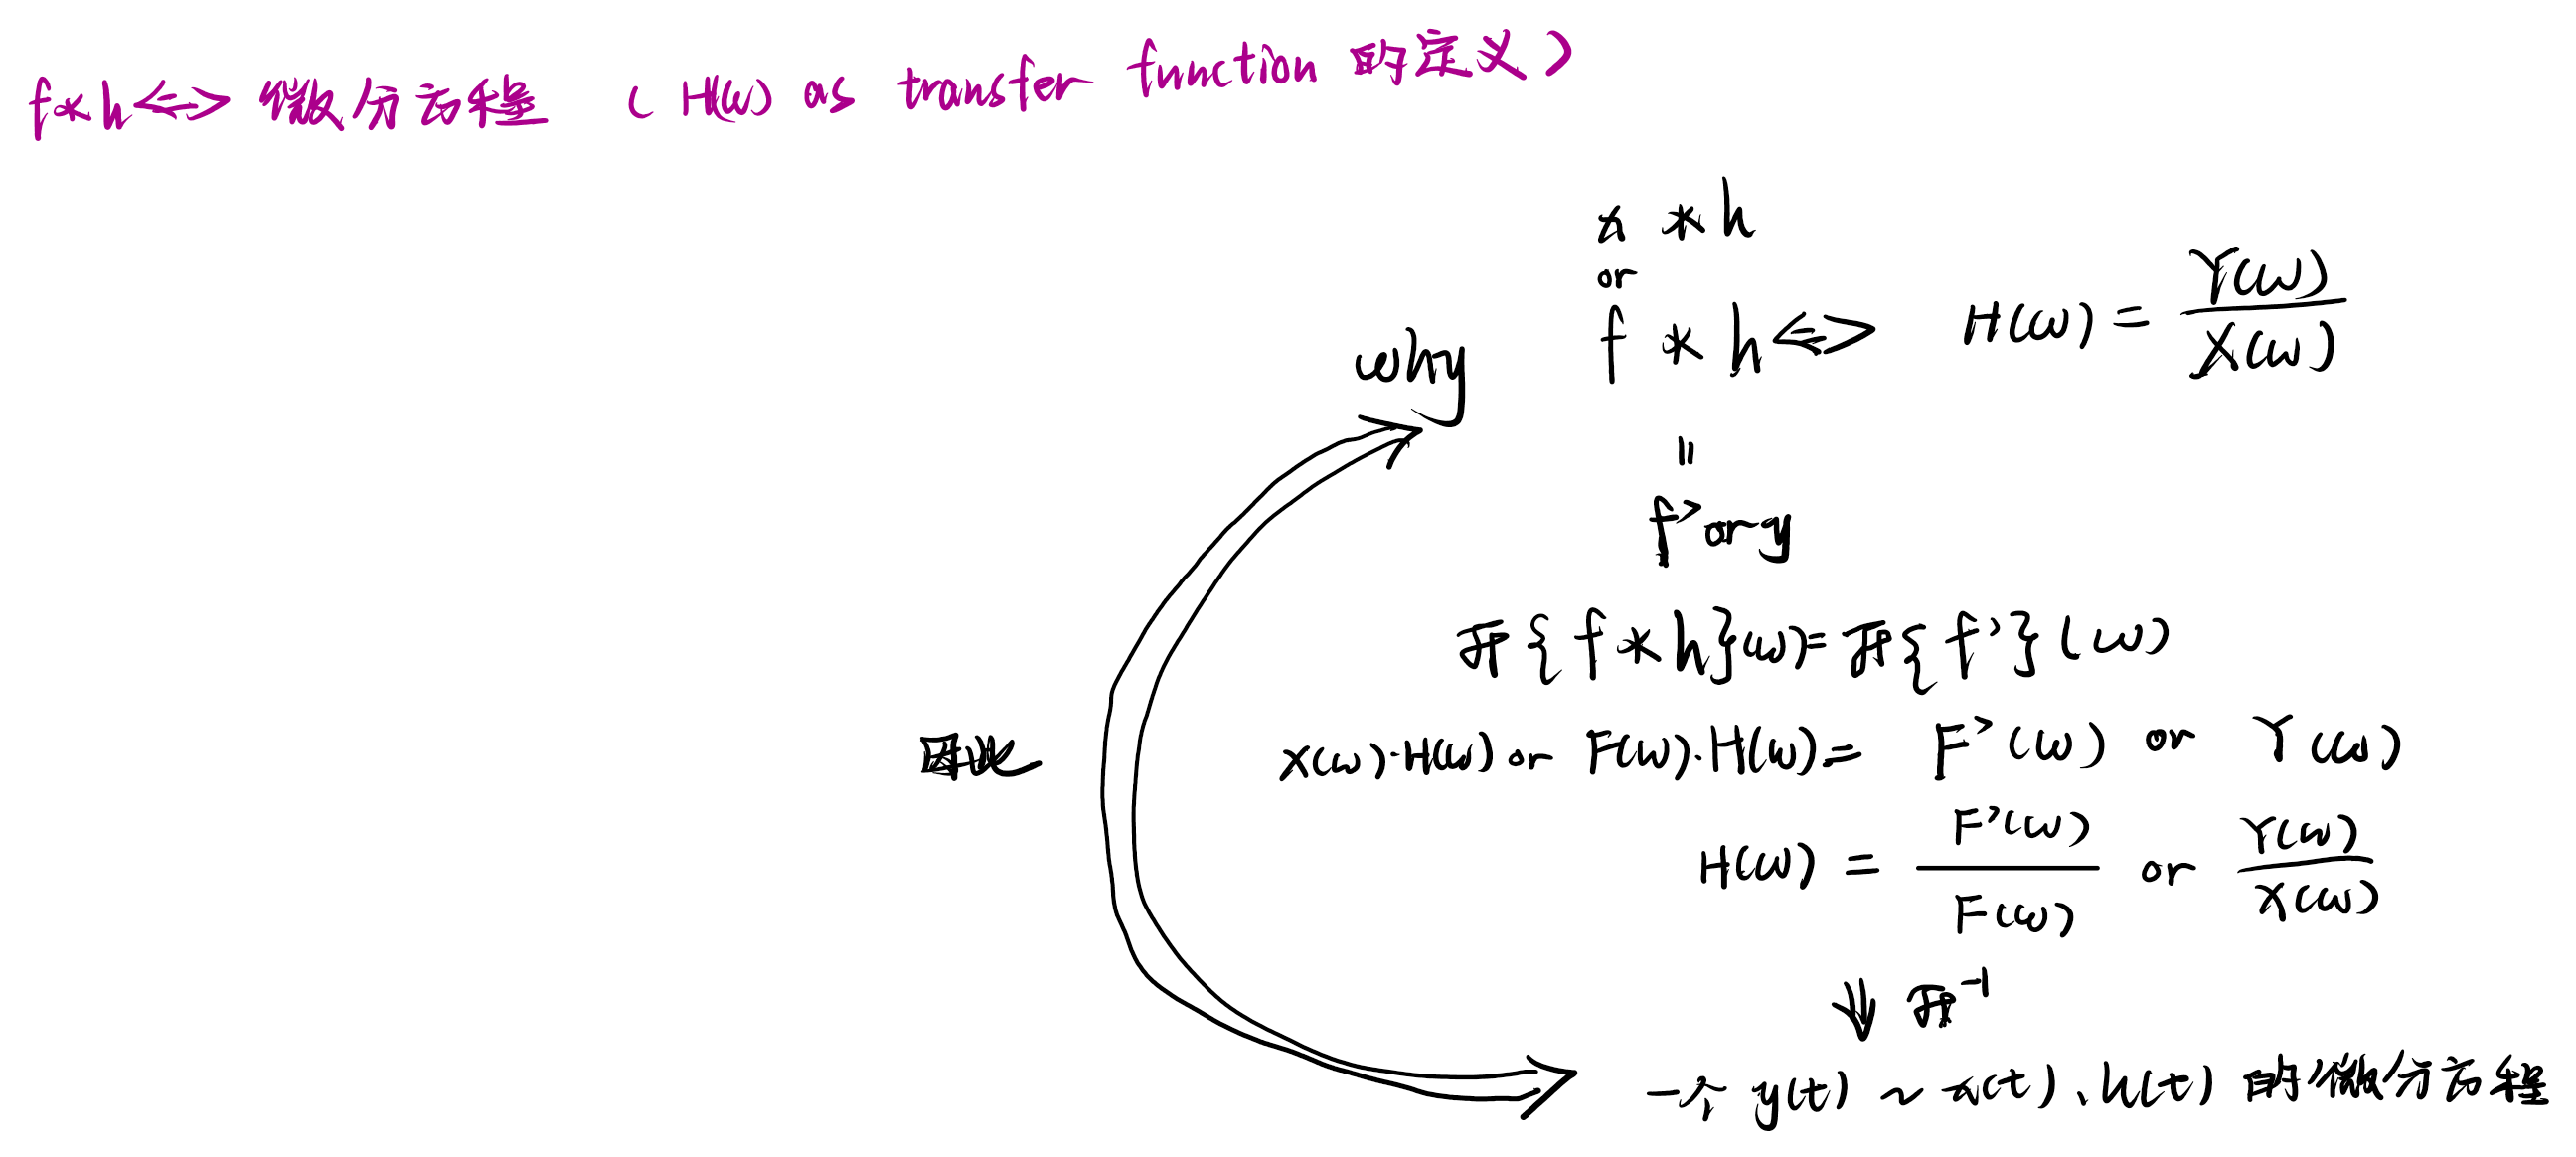 f*h <=> 微分方程 ( H(ω) as transfer function 的定义 )
x * h
or
f * h <=> H(ω) = Y(ω) / X(ω)
why
=
f' or y
ℱ{f*h}(ω) = ℱ{f'}(ω)
因此
X(ω)·H(ω) or F(ω)·H(ω) = F'(ω) or Y(ω)
H(ω) = F'(ω) / F(ω) or Y(ω) / X(ω)
⇓ ℱ⁻¹
一个 y(t) ~ x(t)、h(t) 的微分方程